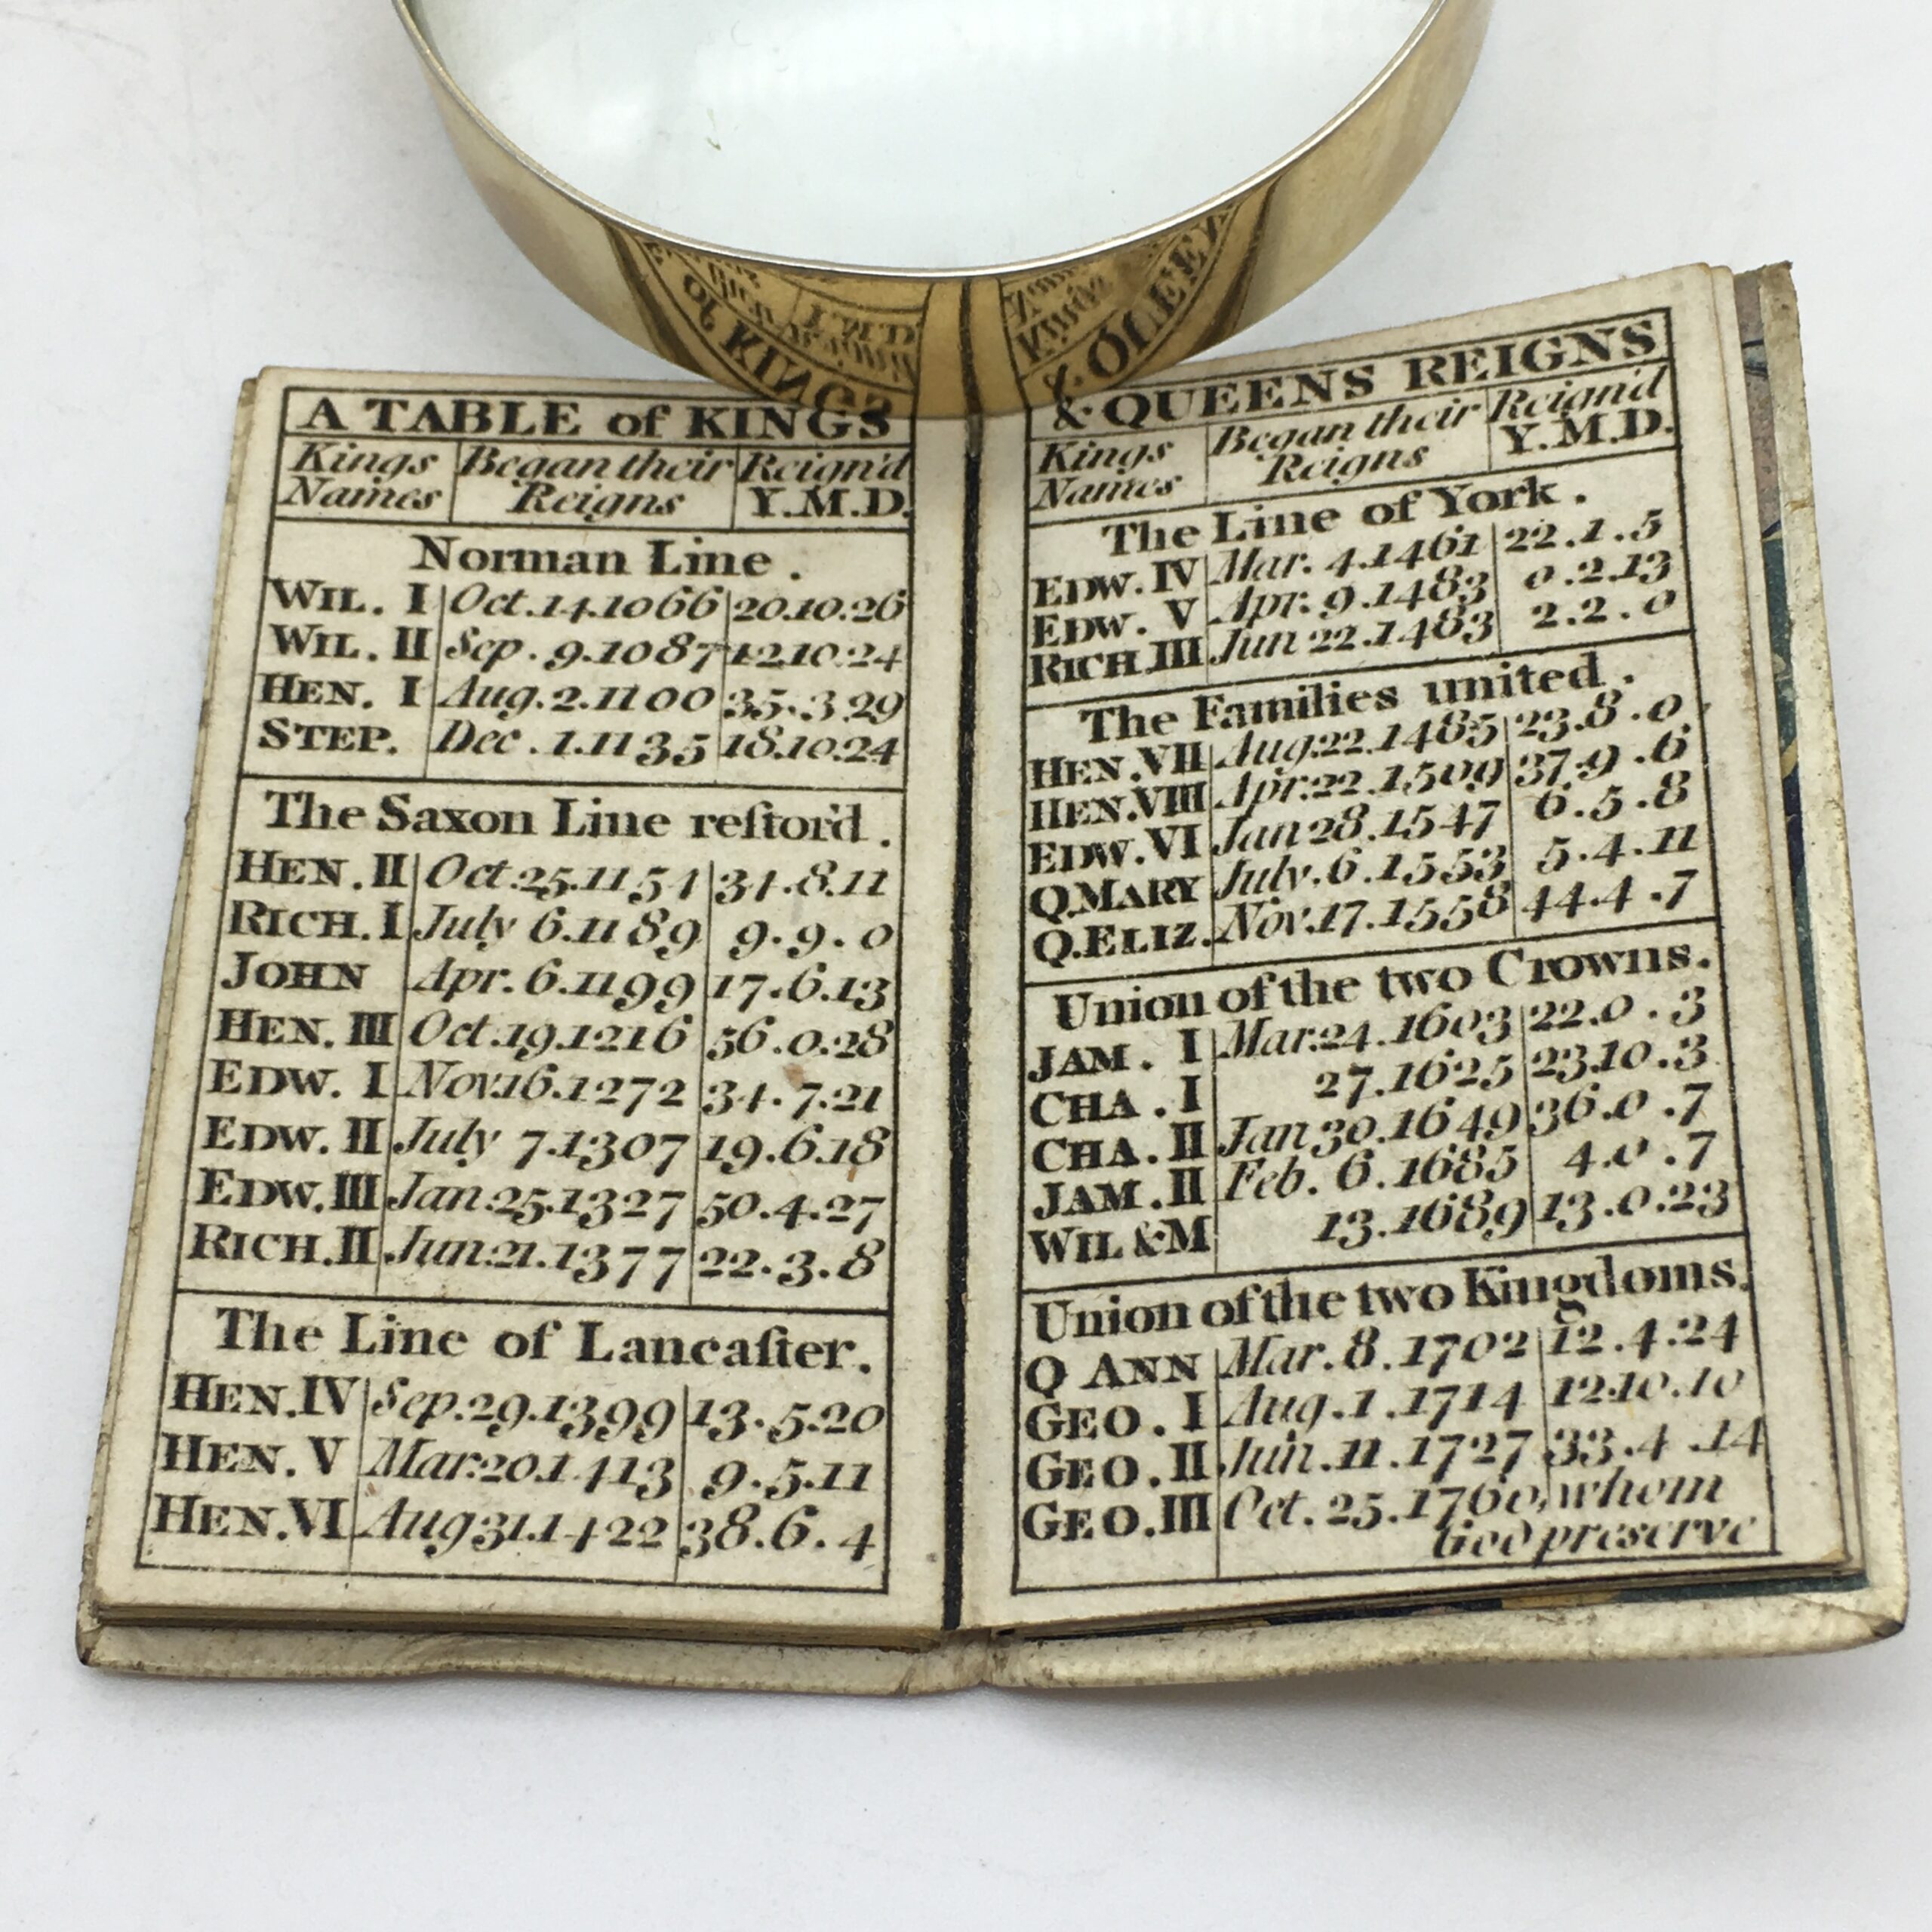 A TABLE of KINGS
Kings Names | Began their Reigns | Reign'd Y.M.D.
Norman Line.
WIL. I | Oct.14.1066 | 20.10.26
WIL. II | Sep. 9.1087 | 12.10.24
HEN. I | Aug.2.1100 | 35.3.29
STEP. | Dec. 1.1135 | 18.10.24
The Saxon Line reſtor'd.
HEN. II | Oct.25.1154 | 34.8.11
RICH. I | July 6.1189 | 9.9.0
JOHN | Apr. 6.1199 | 17.6.13
HEN. III | Oct.19.1216 | 56.0.28
EDW. I | Nov.16.1272 | 34.7.21
EDW. II | July 7.1307 | 19.6.18
EDW. III | Jan.25.1327 | 50.4.27
RICH. II | Jun.21.1377 | 22.3.8
The Line of Lancaſter.
HEN. IV | Sep.29.1399 | 13.5.20
HEN. V | Mar.20.1413 | 9.5.11
HEN. VI | Aug 31.1422 | 38.6.4
& QUEENS REIGNS
Kings Names | Began their Reigns | Reign'd Y.M.D.
The Line of York.
EDW. IV | Mar. 4.1461 | 22.1.5
EDW. V | Apr. 9.1483 | 0.2.13
RICH. III | Jun 22.1483 | 2.2.0
The Families united.
HEN. VII | Aug.22.1485 | 23.8.0
HEN. VIII | Apr.22.1509 | 37.9.6
EDW. VI | Jan 28.1547 | 6.5.8
Q.MARY | July.6.1553 | 5.4.11
Q.ELIZ. | Nov.17.1558 | 44.4.7
Union of the two Crowns.
JAM. I | Mar.24.1603 | 22.0.3
CHA. I | 27.1625 | 23.10.3
CHA. II | Jan 30.1649 | 36.0.7
JAM. II | Feb. 6.1685 | 4.0.7
WIL & M | 13.1689 | 13.0.23
Union of the two Kingdoms.
Q ANN | Mar. 8.1702 | 12.4.24
GEO. I | Aug.1.1714 | 12.10.10
GEO. II | Jun.11.1727 | 33.4.14
GEO. III | Oct. 25.1760, whom
God preserve